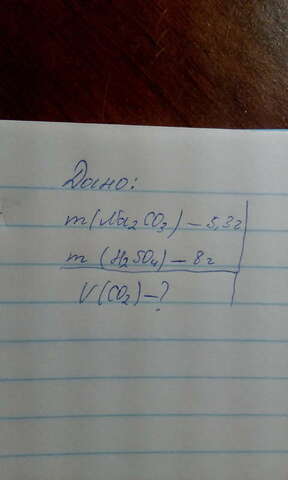 Дано:
m(Na₂CO₃) – 5,3г
m (H₂SO₄) – 8г
V(CO₂) – ?